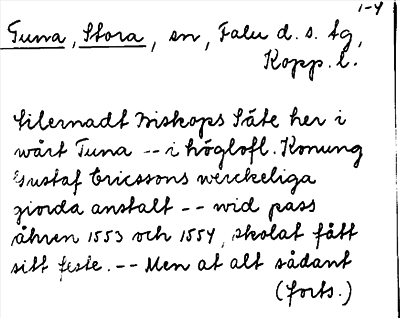 1-4
Tuna, Stora, sn, Falu d. s. tg,
Kopp. l.
Eilernadt Biskops Säte her i
wårt Tuna -- i höglofl. Konung
Gustaf Ericssons werckeliga
giorda anstalt -- wid pass
åhren 1553 och 1554, skolat fått
sitt feste. -- Men at alt sådant
(forts.)